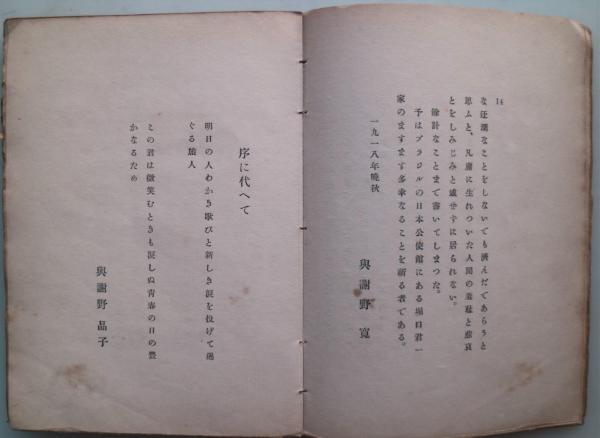 14
な迂濶なことをしないでも濟んだであらうと
思ふと、凡庸に生れついた人間の羞耻と悲哀
とをしみじみと感せずに居られない。
餘計なことまで書いてしまつた。
予はブラジルの日本公使館にある堀口君一
家のますます多幸なることを祈る者である。
一九一八年晩秋
與謝野 寬
序に代へて
明日の人わかき歌びと新しき涙を投げて過
ぐる旅人
この君は微笑むときも涙しぬ青春の日の豊
かなるため
與謝野 晶子